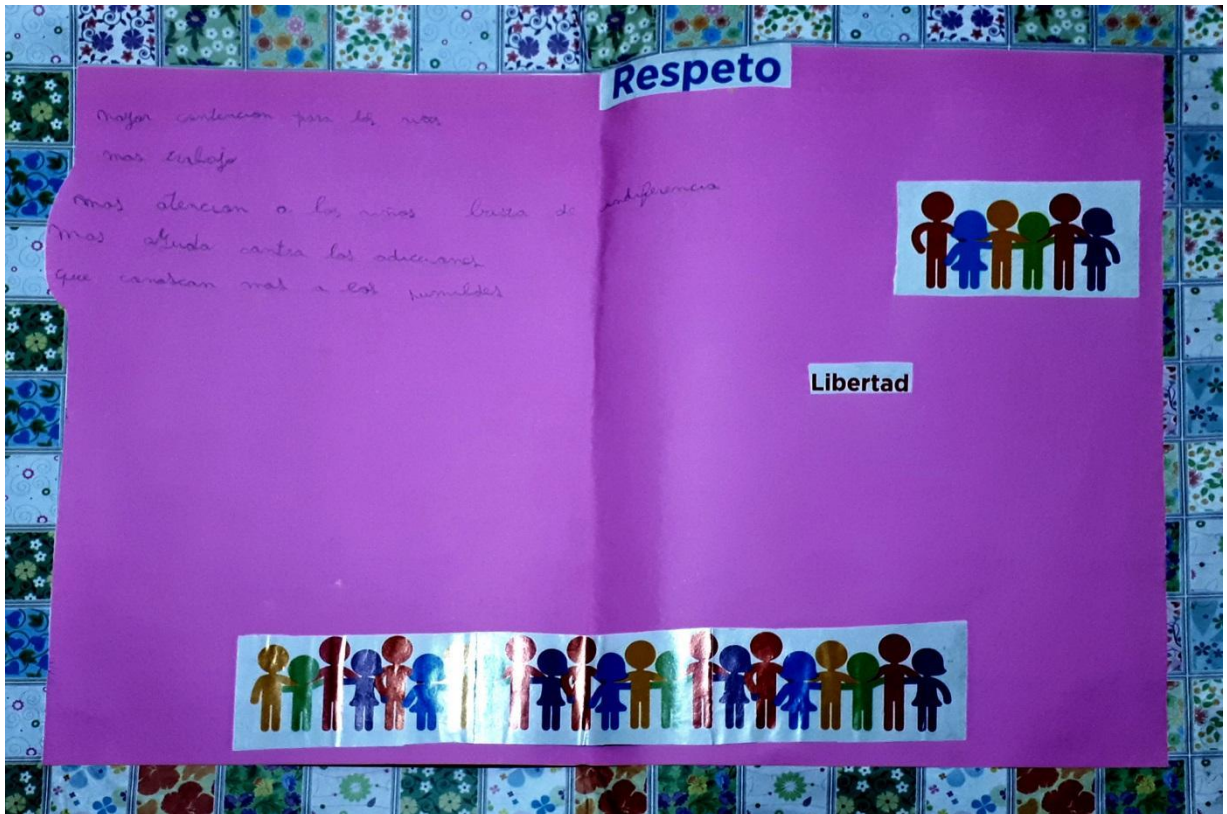 Respeto
mayor contencion para los niños
mas trabajo
mas atencion a los niños basta de indiferencia
mas ayuda contra las adicciones
que conoscan mas a los humildes
Libertad